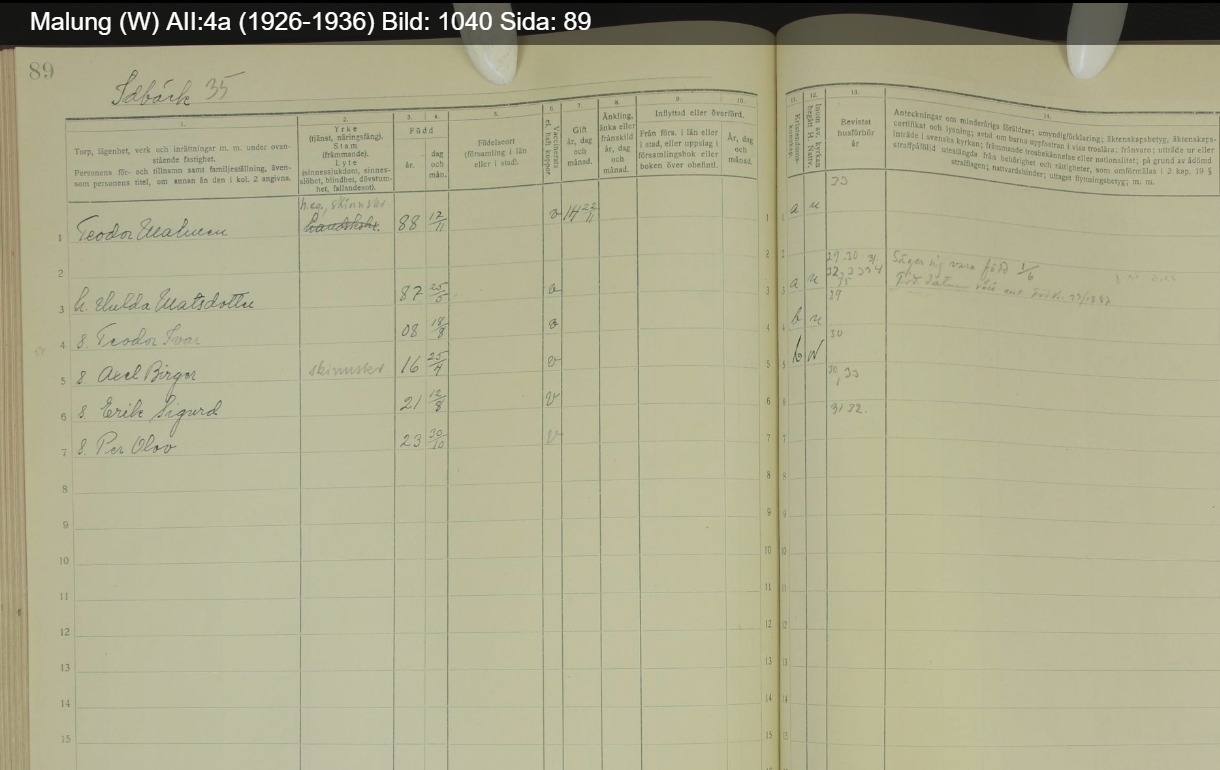 Malung (W) AII:4a (1926-1936) Bild: 1040 Sida: 89
89
Idbäck 35
1.
Torp, lägenhet, verk och inrättningar m. m. under ovan-
stående fastighet.
Personens för- och tillnamn samt familjeställning, även-
som personens titel, om annan än den i kol. 2 angivna.
2.
Yrke
(tjänst, näringsfång).
Stam
(främmande).
Lyte
(sinnessjukdom, sinnes-
slöhet, blindhet, dövstum-
het, fallandesot).
3. 4.
Född
år.
dag
och
mån.
5.
Födelseort
(församling i län
eller i stad).
6.
Vaccinerad
el. haft koppor.
7.
Gift
år, dag
och
månad.
8.
Änkling,
änka eller
frånskild
år, dag
och
månad.
9. 10.
Inflyttad eller överförd.
Från förs. i län eller
i stad, eller uppslag i
församlingsbok eller
boken över obefintl.
År, dag
och
månad.
11.
Kristendoms-
kunskap.
12.
Inom sv. kyrkan
begått H. Nattv.
13.
Bevistat
husförhör
år
14.
Anteckningar om minderårigs föräldrar; omyndigförklaring; äktenskapsbetyg, äktenskaps-
certifikat och lysning; avtal om barns uppfostran i viss troslära; frånvaro; utträde ur eller
inträde i svenska kyrkan; främmande trosbekännelse eller nationalitet; på grund av ådömd
straffpåföljd utestängda från behörighet och rättigheter, som omförmälas i 2 kap. 19 §
strafflagen; nattvardshinder; uttaget flyttningsbetyg; m. m.
33
h.eg., skinnskr
1 Teodor Matsson 88 12/11 v 14 22/11 1 a n
2 2
29.30 31
32, 33 34
35
Säger sig vara född 1/6
3 h. Hulda Matsdotter 87 25/5 v 3 a n
29
4 S. Teodor Ivar 08 18/8 v 4 b n
30
5 S. Axel Birger skinnskr 16 25/4 v 5 b N
30, 33
6 S. Erik Sigurd 21 12/8 v 6
31 32.
7 S. Per Olov 23 30/10 v 7
8 8
9 9
10 10
11 11
12 12
13 13
14 14
15 15